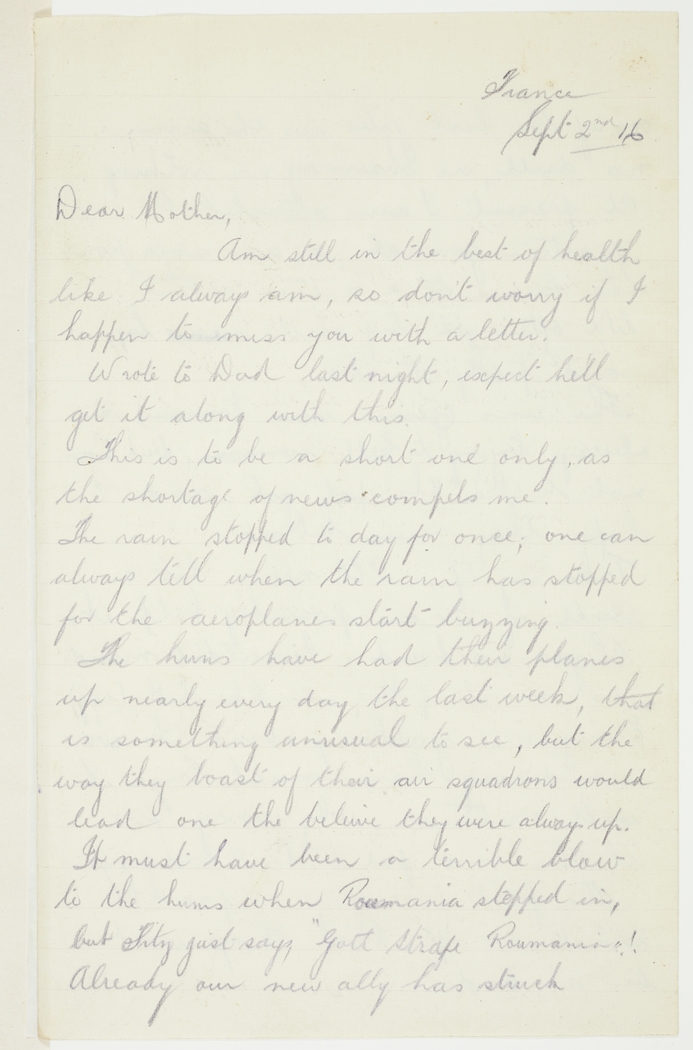 France
Sept 2nd 16
Dear Mother,
Am still in the best of health
like I always am, so don't worry if I
happen to miss you with a letter.
Wrote to Dad last night, expect he'll
get it along with this.
This is to be a short one only, as
the shortage of news compels me.
The rain stopped to day for once; one can
always tell when the rain has stopped
for the aeroplanes start buzzing.
The huns have had their planes
up nearly every day the last week, that
is something unusual to see, but the
way they boast of their air squadrons would
lead one the beleive they were always up.
It must have been a terrible blow
to the huns when Roumania stepped in,
but Fritz just says, "Gott Strafe Roumania"!
Already our new ally has struck